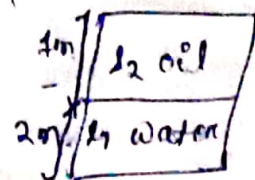 1m
s2 oil
2m
s1 water